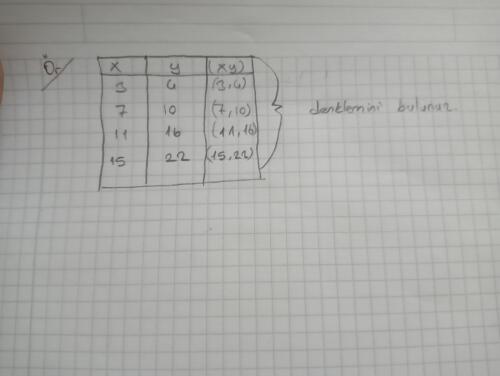 Ör
x y (xy)
3 4 (3,4)
7 10 (7,10) denklemini bulunuz.
11 16 (11,16)
15 22 (15,22)